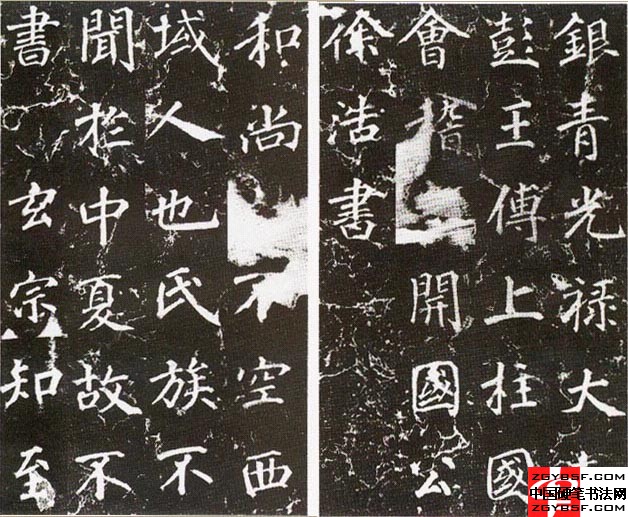 銀青光禄大
彭王傅上柱國
會稽開國公
徐浩書
和尚不空西
域人也氏族不
聞扵中夏故不
書玄宗知至
ZGYBSF.COM
中国硬笔书法网
ZGYBSF.COM